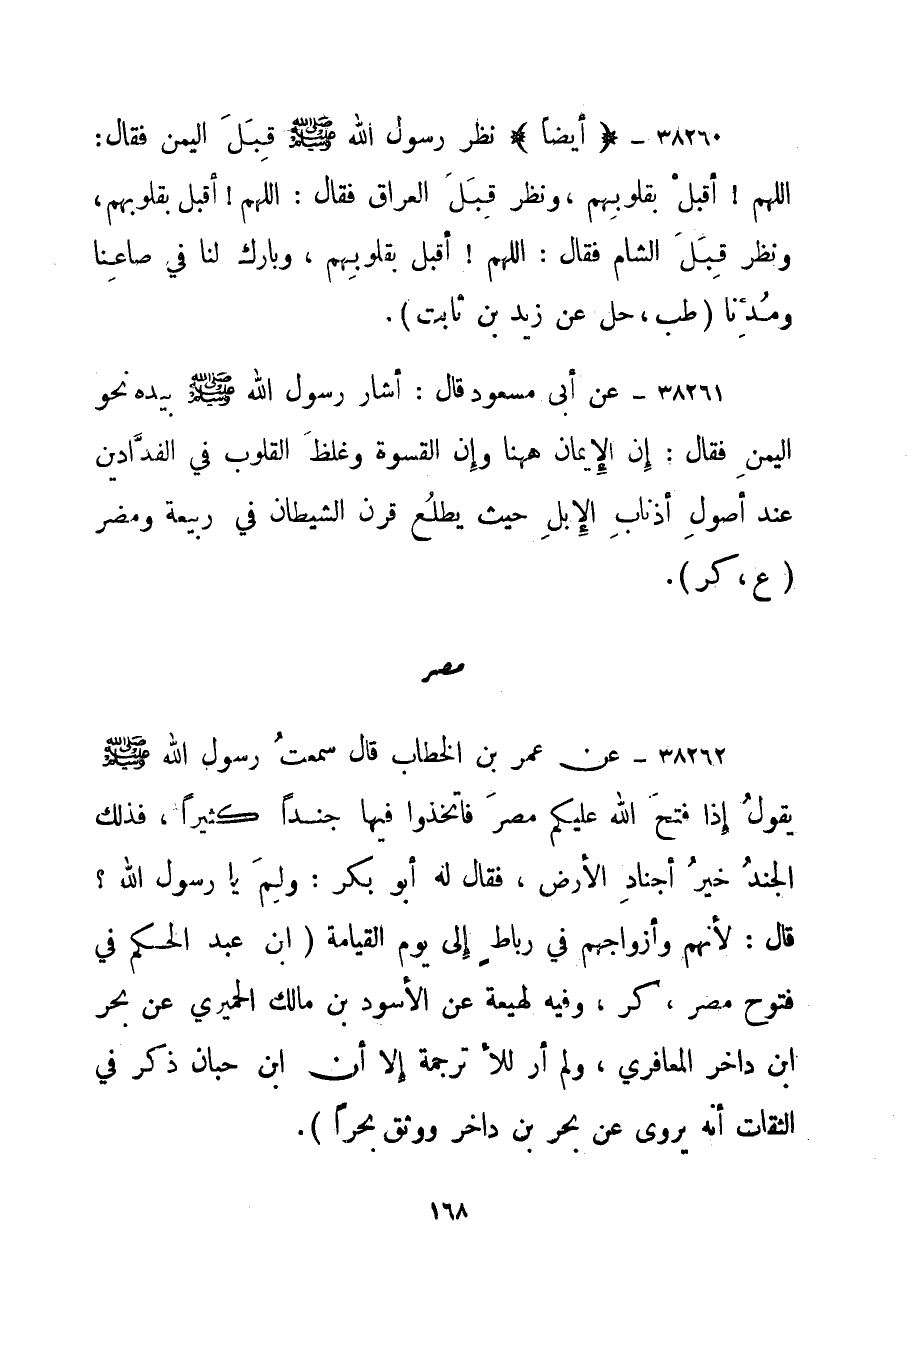 ٣٨٢٦٠ - ﴿ أيضاً ﴾ نظر رسول الله ﷺ قِبَلَ اليمن فقال:
اللهم ! أقبلْ بقلوبِهم ، ونظر قِبَلَ العراق فقال : اللهم ! أقبل بقلوبهم،
ونظر قِبَلَ الشام فقال : اللهم ! أقبل بقلوبِهم ، وبارك لنا في صاعِنا
ومُدِّنا ( طب ، حل عن زيد بن ثابت ) .
٣٨٢٦١ - عن أبي مسعود قال : أشار رسول الله ﷺ بيده نحو
اليمنِ فقال : إِن الإِيمان ههنا وإِن القسوة وغلظَ القلوب في الفدَّادين
عند أصولِ أذنابِ الإِبلِ حيث يطلُع قرن الشيطان في ربيعة ومضر
( ع ، كر ) .
مصر
٣٨٢٦٢ - عن عمر بن الخطاب قال سمعتُ رسول الله ﷺ
يقولُ إِذا فتحَ الله عليكم مصرَ فاتخذوا فيها جنداً كثيراً ، فذلك
الجندُ خيرُ أجنادِ الأرض ، فقال له أبو بكر : ولِمَ يا رسول الله ؟
قال : لأنهم وأزواجهم في رباطٍ إِلى يوم القيامة ( ابن عبد الحكم في
فتوح مصر ، كر ، وفيه لهيعة عن الأسود بن مالك الحميري عن بحر
ابن داخر المعافري ، ولم أر للأ ترجمة إلا أن ابن حبان ذكر في
الثقات أنه يروى عن بحر بن داخر ووثق بحراً ) .
١٦٨